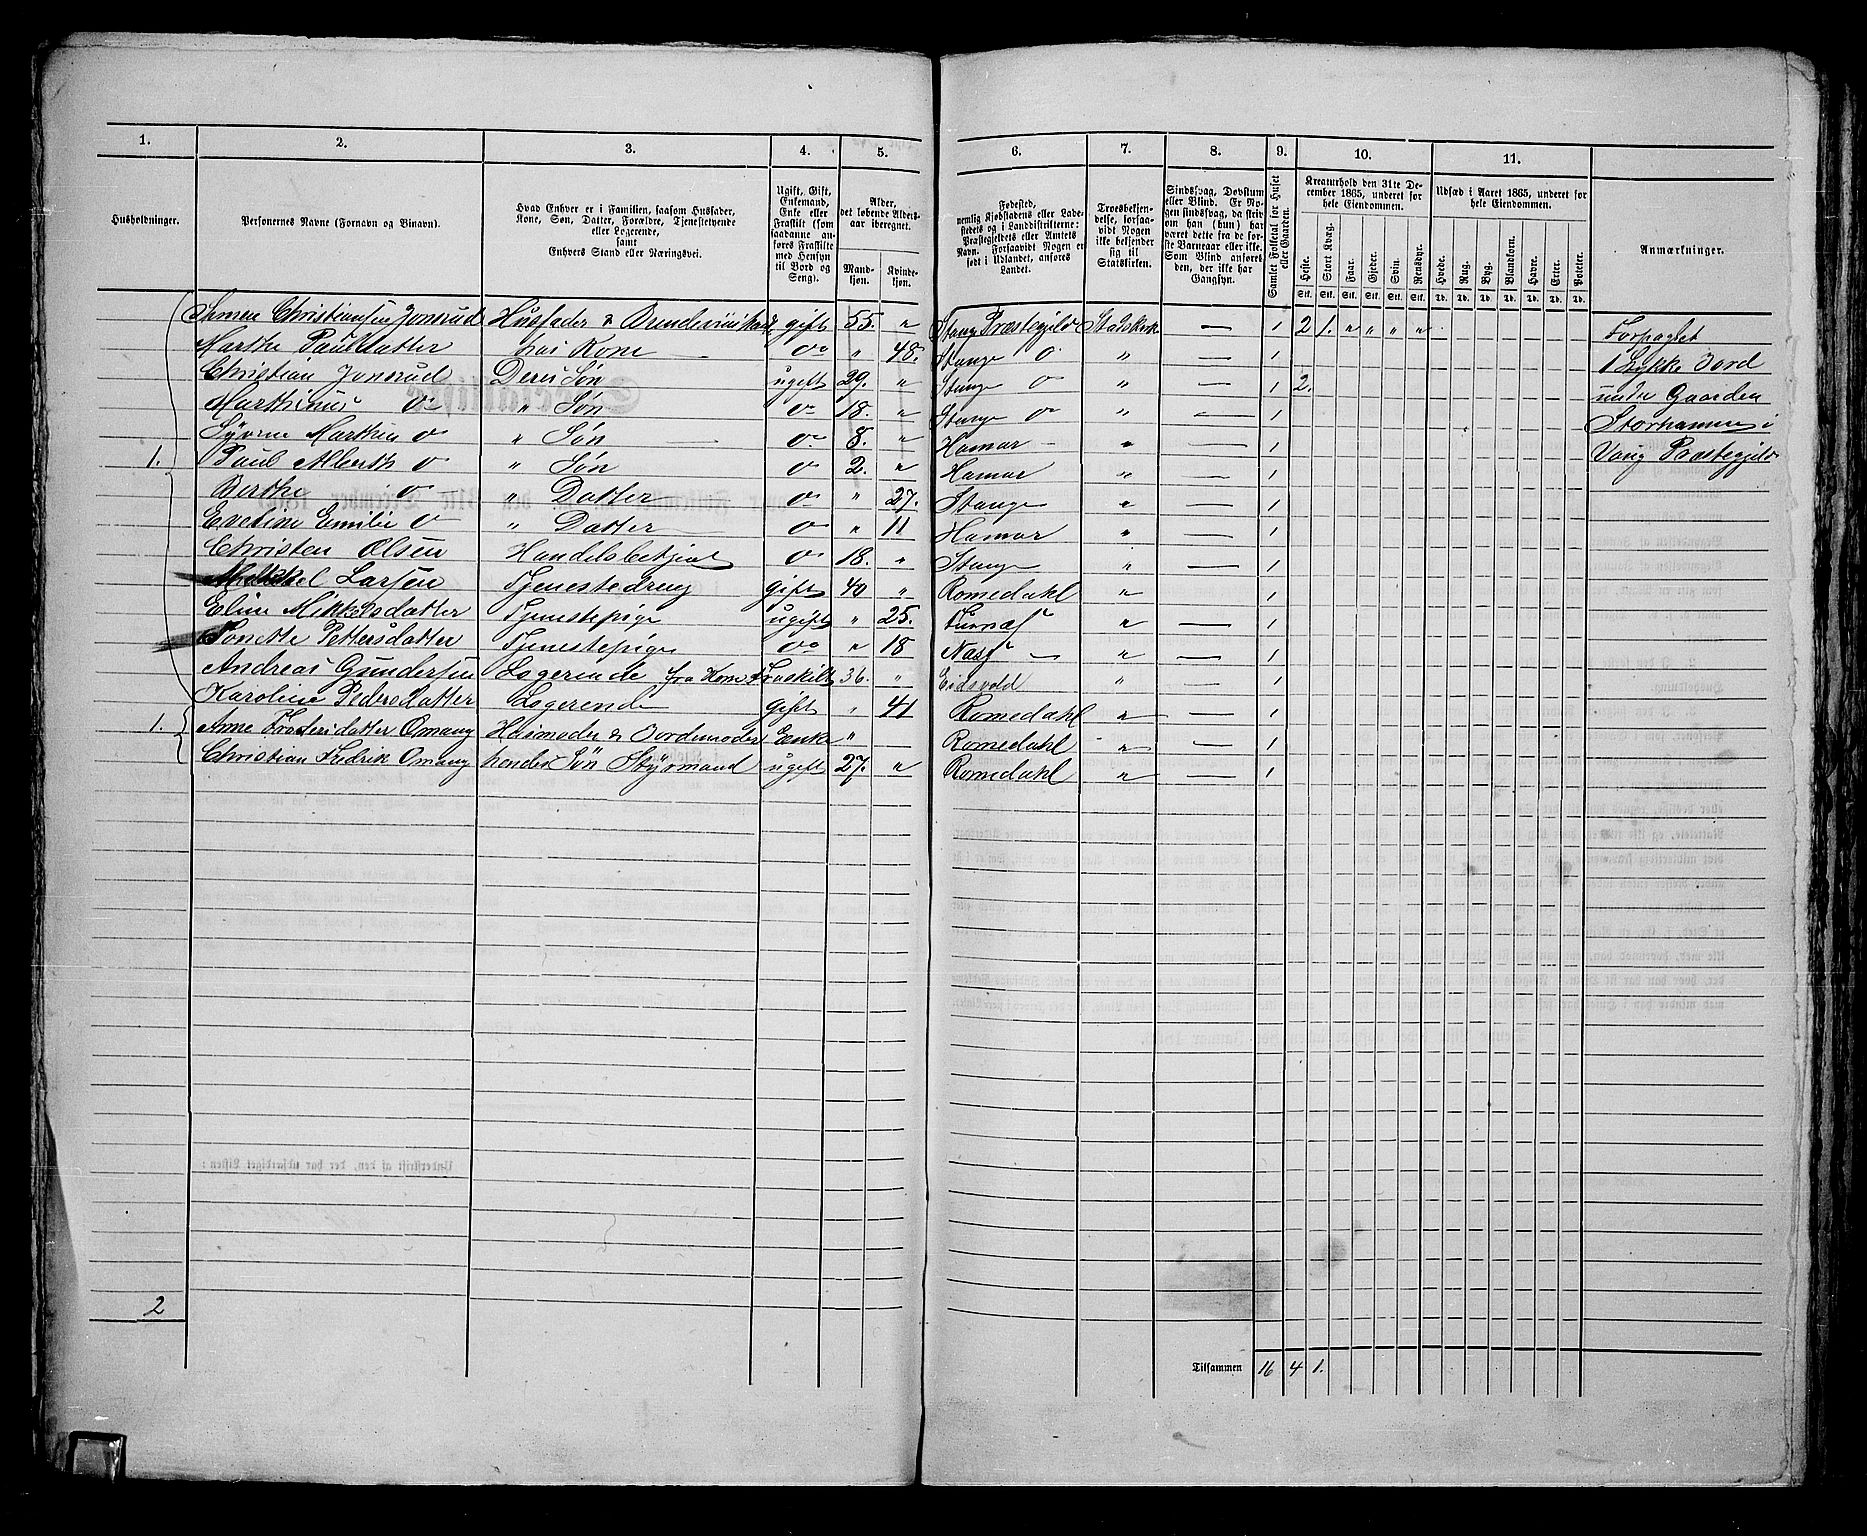 1. 2. 3. 4. 5. 6. 7. 8. 9. 10. 11.
Husholdninger.
Personernes Navne (Fornavn og Binavn).
Hvad Enhver er i Familien, saasom Husfader, Kone, Søn, Datter, Forældre, Tjenestetyende eller Logerende, samt Enhvers Stand eller Næringsvei.
Ugift, Gift, Enkemand, Enke eller Fraskilt (som saadanne anføres Fraskilte med Hensyn til Bord og Seng).
Alder, det løbende Aldersaar iberegnet.
Mandkjøn. Kvindekjøn.
Fødested, nemlig Kjøbstadens eller Ladestedets og i Landdistrikterne: Præstegjeldets eller Amtets Navn. Forsaavidt Nogen er født i Udlandet, anføres Landet.
Troesbekjendelse, forsaavidt Nogen ikke bekjender sig til Statskirken.
Sindssvag, Døvstum eller Blind. Er Nogen sindssvag, da skriv om han (hun) har været dette fra de første Barneaar eller ikke. Som Blind anføres den, der ikke har Gangsyn.
Samlet Folketal for Huset eller Gaarden.
Kreaturhold den 31te December 1865, underet for hele Eiendommen.
Heste. Stort Kvæg. Faar. Gjeder. Svin. Rensdyr.
Stk. Stk. Stk. Stk. Stk. Stk.
Udsæd i Aaret 1865, underet for hele Eiendommen.
Hvede. Rug. Byg. Blandkorn. Havre. Erter. Poteter.
Td. Td. Td. Td. Td. Td. Td.
Anmærkninger.
Christiansen Jonsrud Husfader & gift 55. " Stange Præstegjeld Statskirk — 1 2 1. " " " " Forpagtet
Marthe Paulsdatter hos Kone do " 48. Stange do " — 1 1 Stykke Jord
Christian Jonsrud Deres Søn ugift 29. " Stange do " — 1 2. under Gaarden
Marthinus do " Søn do 18. " Stange do " — 1 Storhammer i
Martin do " Søn do 8. " Hamar — " — 1 Vang Præstegjeld
1. Paul Alberth do " Søn do 2. " Hamar " — 1
Berthe do " Datter do " 27. Stange " — 1
Evetine Emilie do " Datter do " 11 Hamar " — 1
Christen Olsen Handelsbetjent do 18. " Stange " — 1
Mikkel Larsen Tjenestedreng gift 40 " Romedahl " — 1
Eline Mikkelsdatter Tjenestepige ugift " 25. Furnæs " — 1
Pettersdatter Tjenestepige do " 18 Næs — " — 1
Andreas Gundersen Logerende fra Kone Fraskilt 36. " Eidsvold " — 1
Karoline Pedersdatter Logerende gift " 41 Romedahl " — 1
1. Anne Omang Husmoder & Jordemoder Enke " Romedahl " — 1
Christian Fredrik Omang hendes Søn Styrmand ugift 27. " Romedahl " — 1
2
Tilsammen 16 4 1.